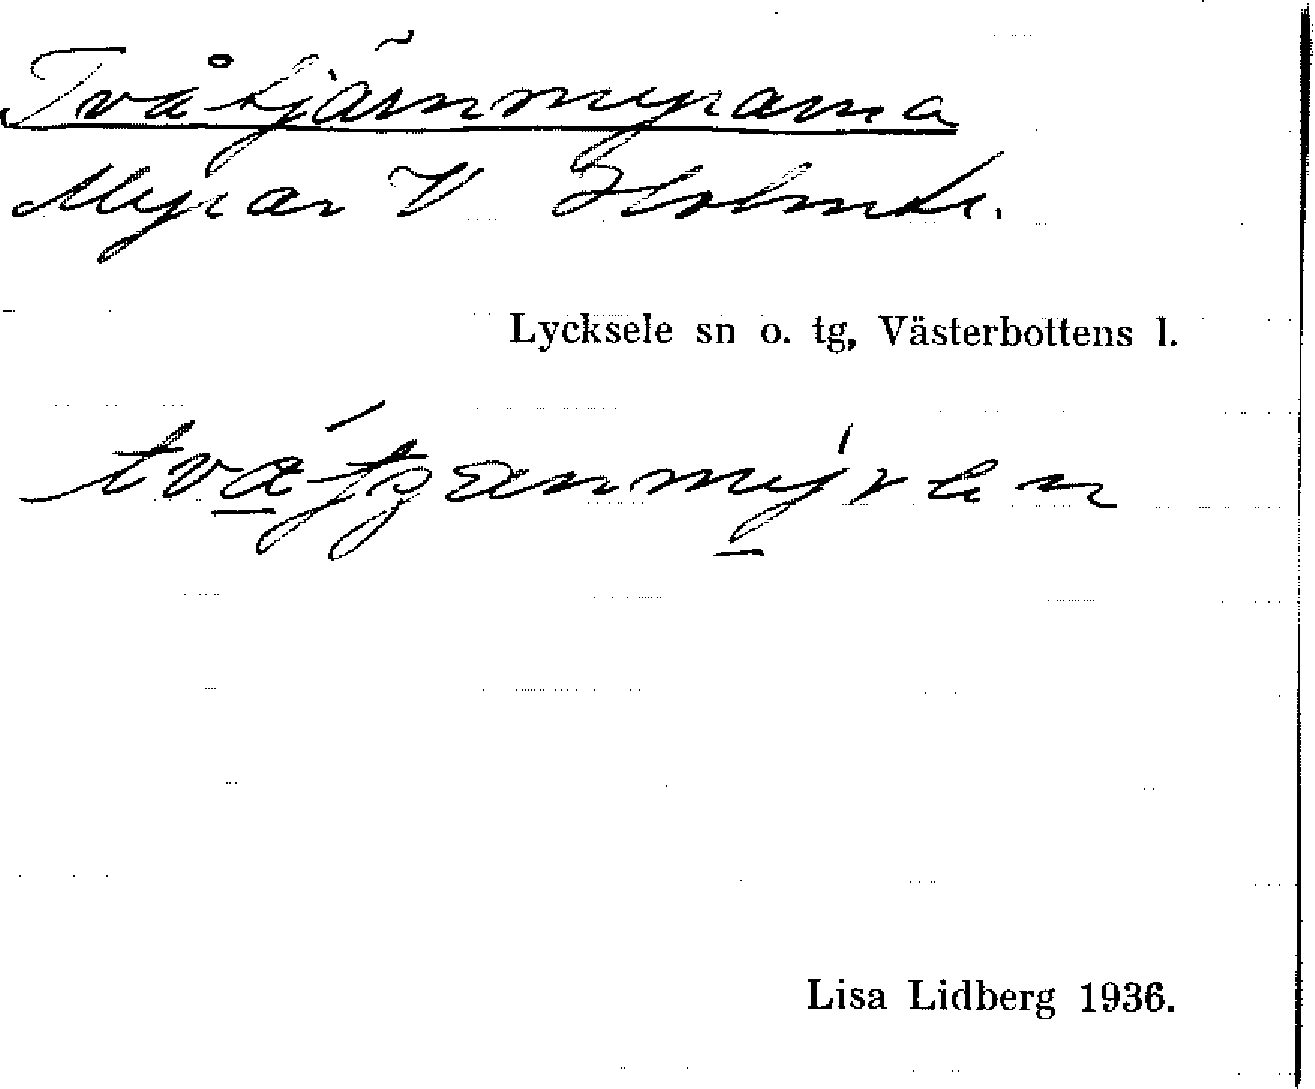 Tvåtjärnmyrarna
Myrar V Holmtr.
Lycksele sn o. tg, Västerbottens l.
Lisa Lidberg 1936.